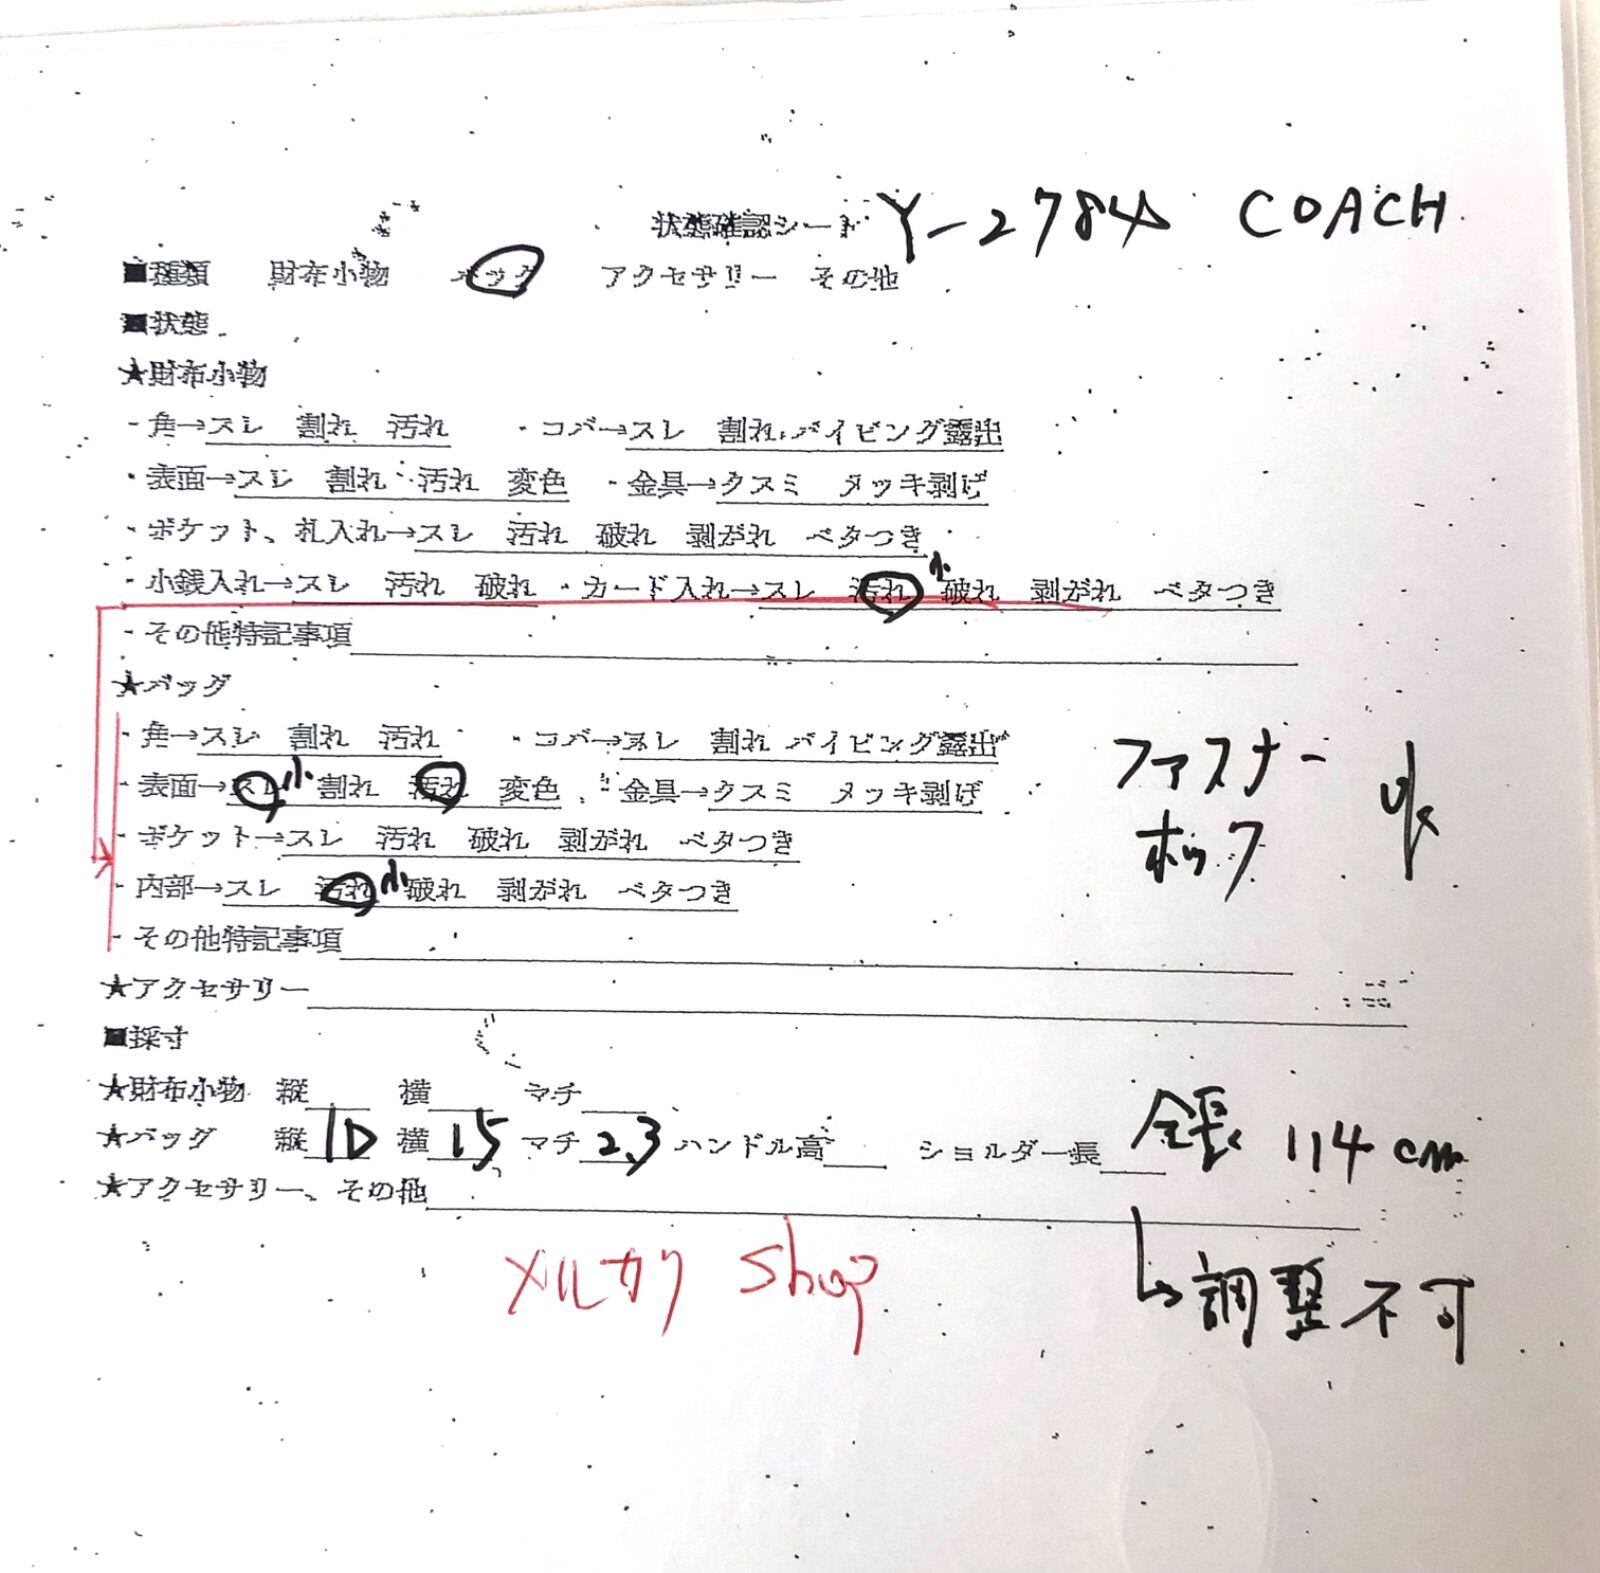 状態確認シート Y-2784 COACH
■種類 財布小物 バッグ アクセサリー その他
■状態
★財布小物
・角→スレ 割れ 汚れ ・コバ→スレ 割れ パイピング露出
・表面→スレ 割れ 汚れ 変色 ・金具→クスミ メッキ剥げ
・ポケット、札入れ→スレ 汚れ 破れ 剥がれ ベタつき
・小銭入れ→スレ 汚れ 破れ ・カード入れ→スレ 汚れ 小 破れ 剥がれ ベタつき
・その他特記事項
★バッグ
・角→スレ 割れ 汚れ ・コバ→スレ 割れ パイピング露出
・表面→スレ 小 割れ 汚れ 変色 ・金具→クスミ メッキ剥げ
ファスナー
ホック ok
・ポケット→スレ 汚れ 破れ 剥がれ ベタつき
・内部→スレ 汚れ 小 破れ 剥がれ ベタつき
・その他特記事項
★アクセサリー
■採寸
★財布小物 縦 横 マチ
★バッグ 縦 10 横 15 マチ 2.3 ハンドル高 ショルダー長 全長 114cm
★アクセサリー、その他
↳調整不可
メルカリ shop